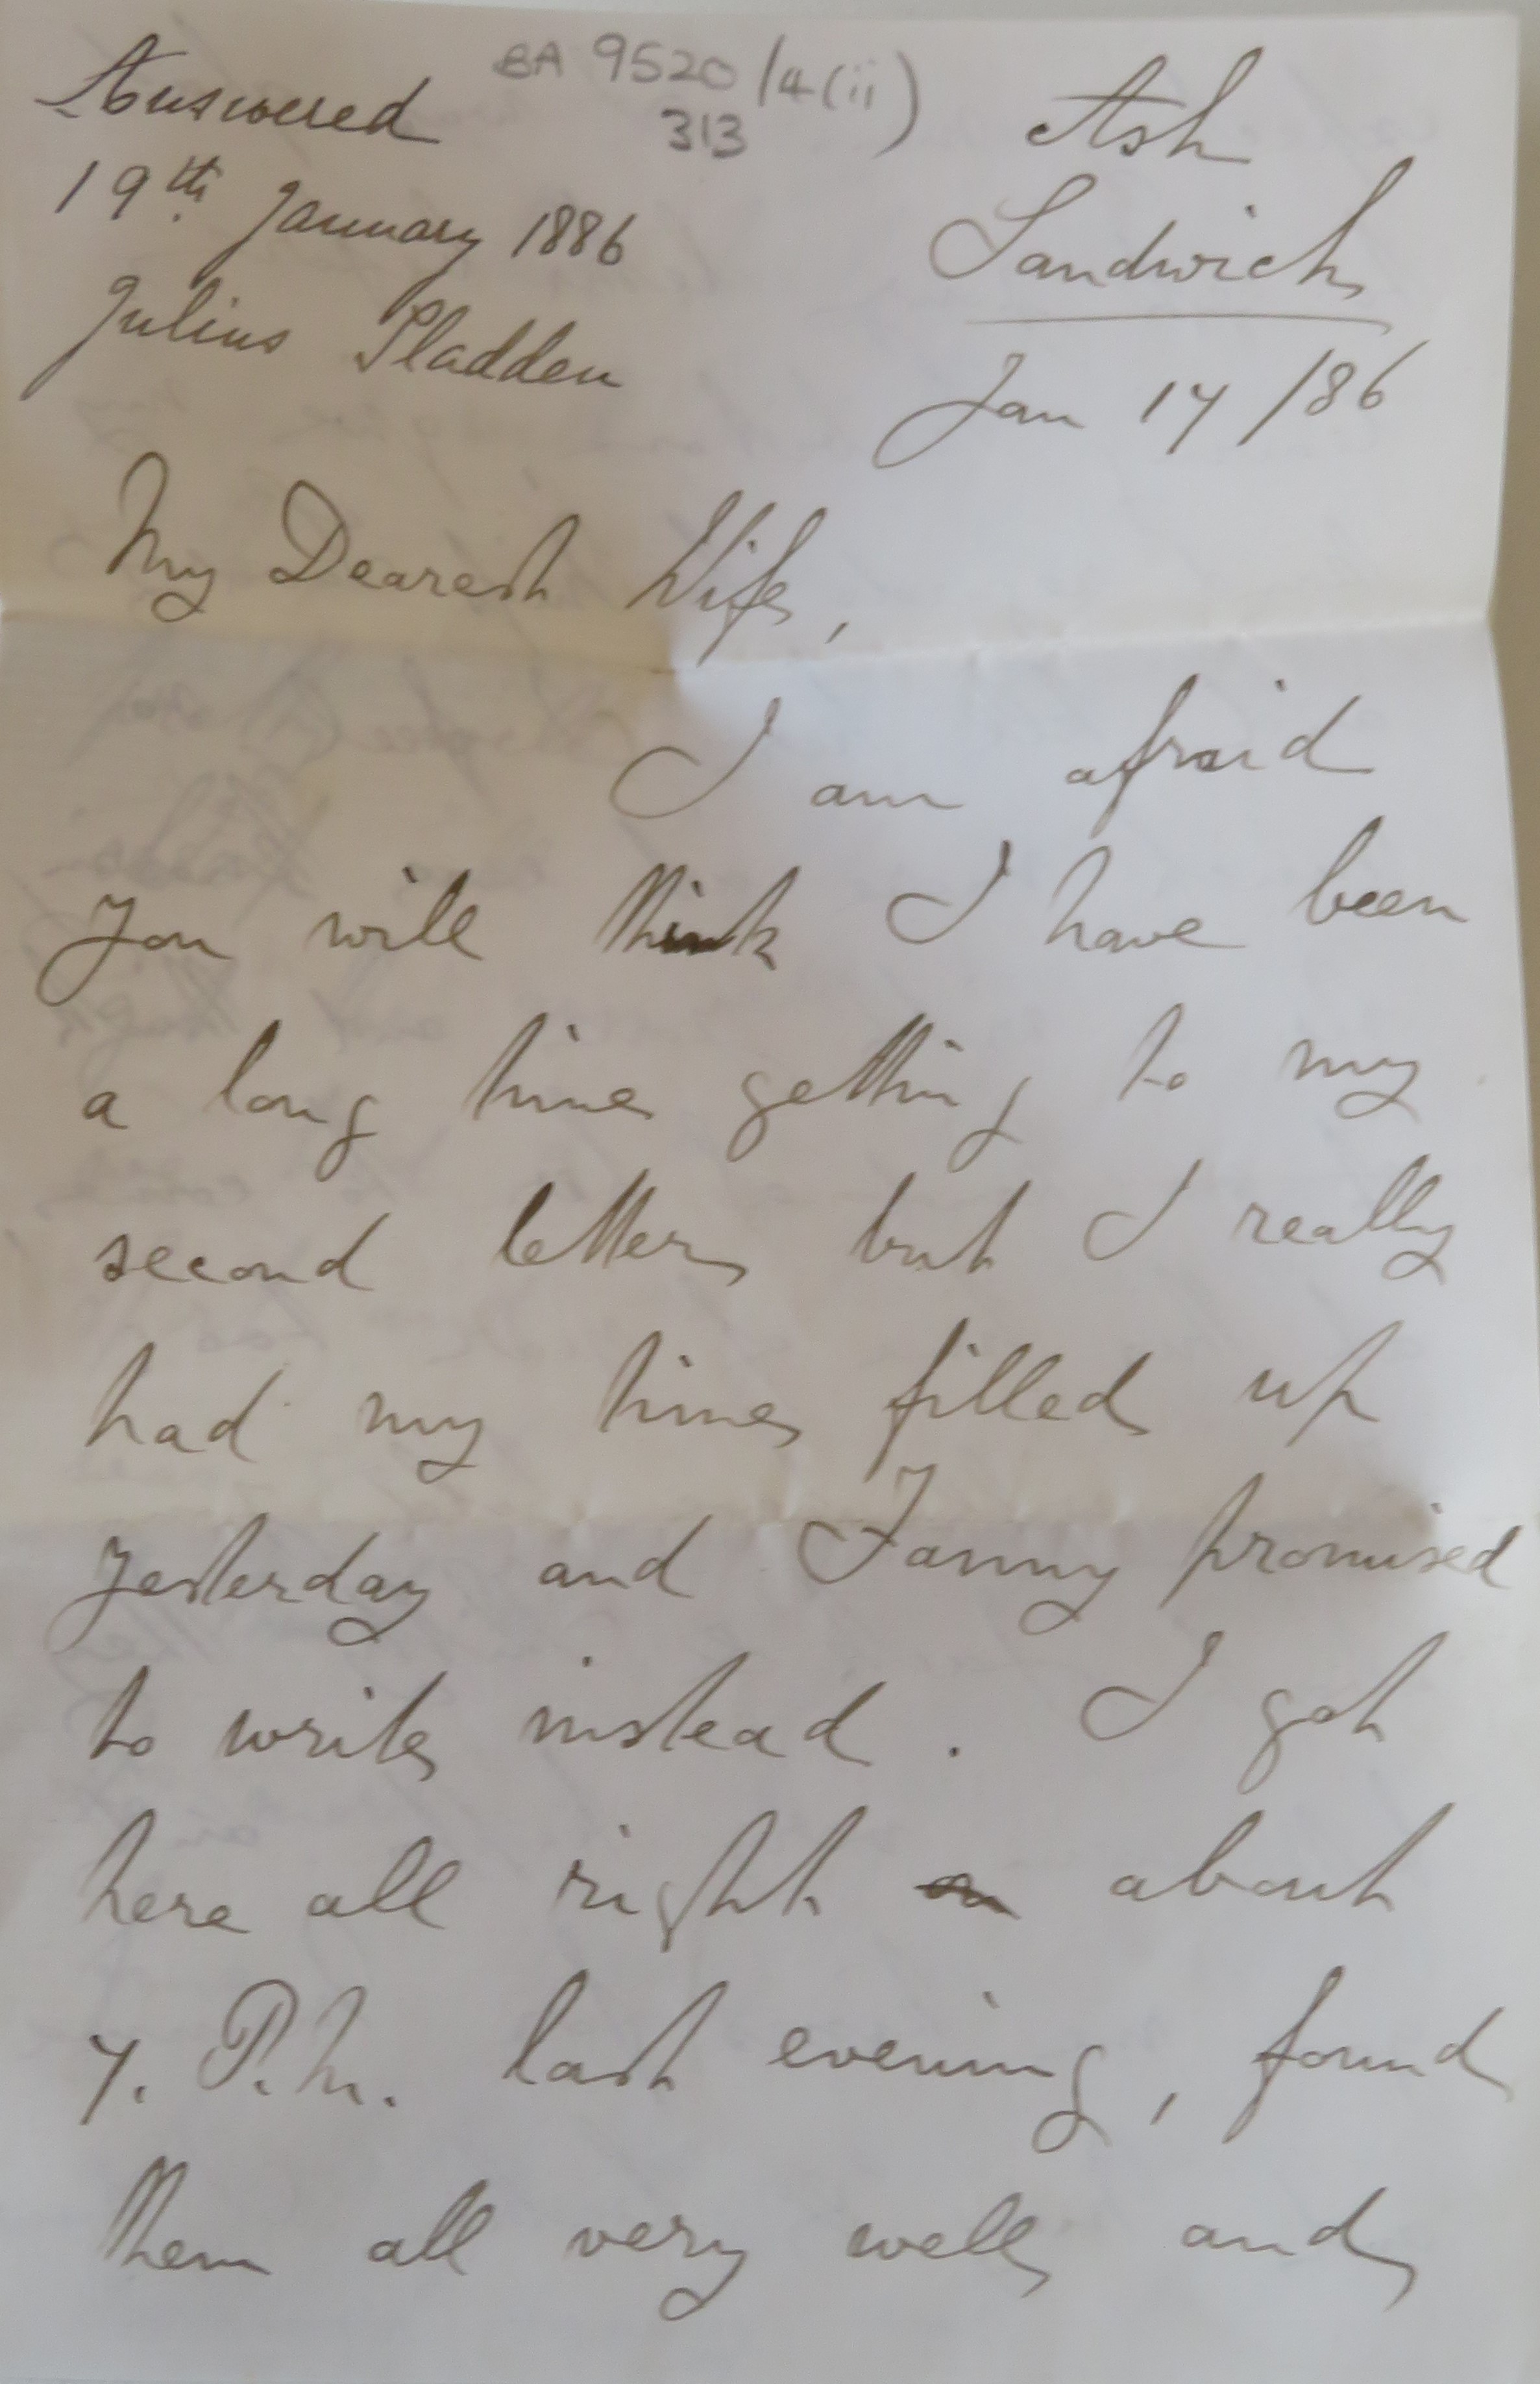 BA 9520/4(ii)
313
Answered
19th January 1886
Julius Sladden
Ash
Sandwich
Jan 17/86
My Dearest Wife,
I am afraid
you will think I have been
a long time getting to my
second letter but I really
had my time filled up
yesterday and Fanny promised
to write instead. I got
here all right about
7. P.M. last evening, found
them all very well and